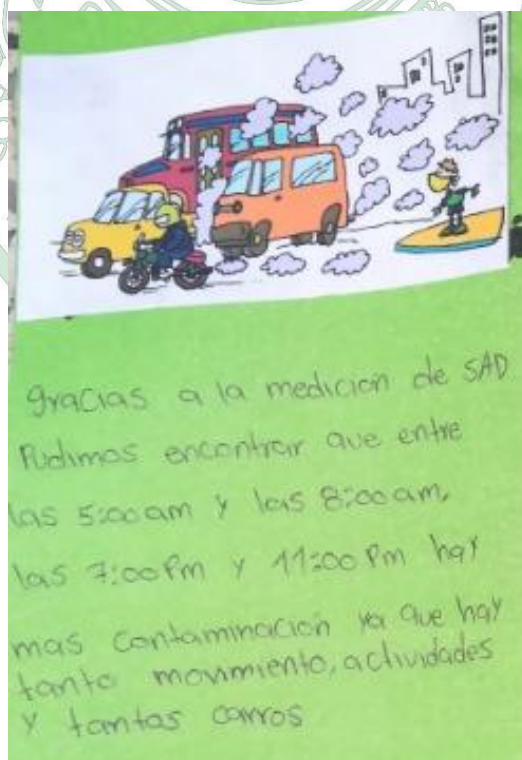 gracias a la medición de SAD
Pudimos encontrar que entre
las 5:00am y las 8:00am,
las 7:00Pm y 11:00 Pm hay
mas contaminación ya que hay
tanto movimiento, actividades
y tantos carros